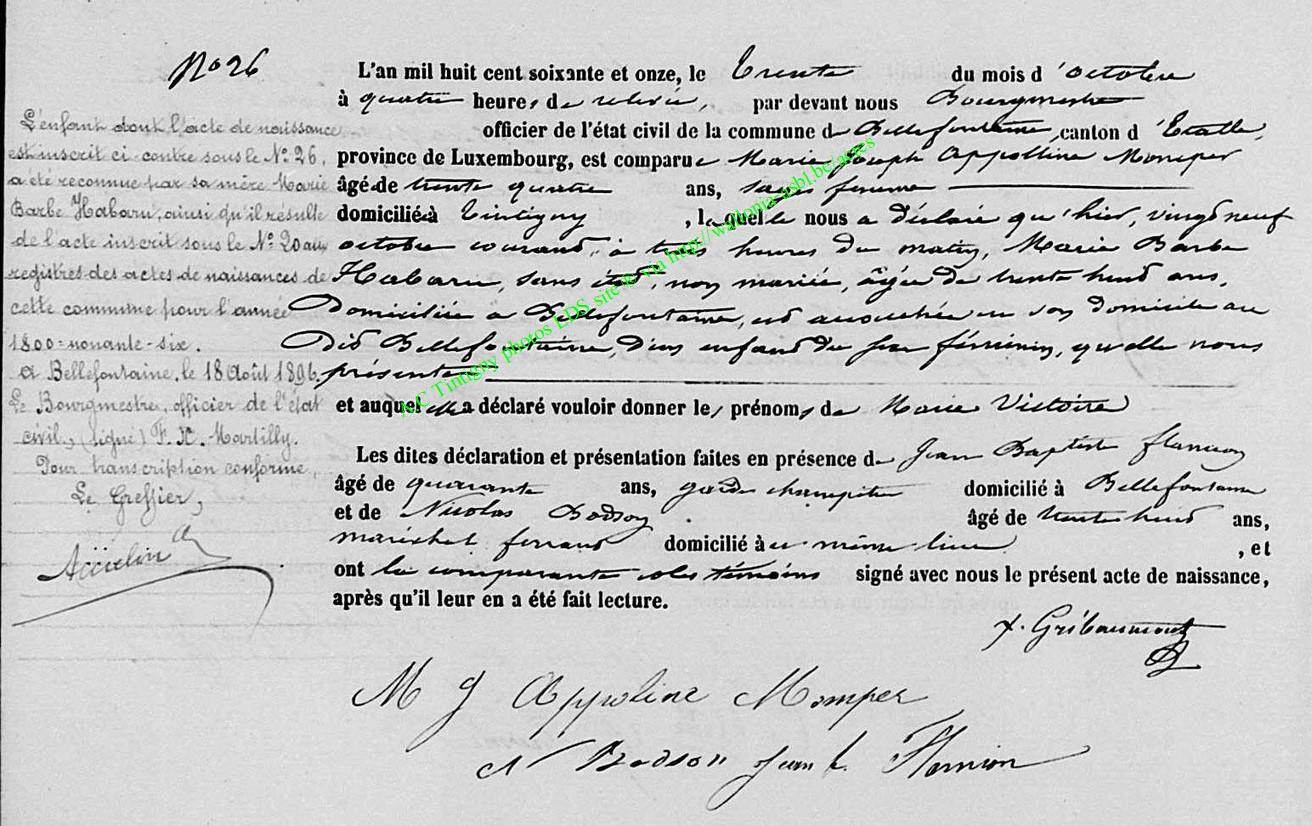 No 26
L'an mil huit cent soixante et onze, le trente du mois d'octobre
à quatre heures de relevée, par devant nous Bourgmestre
officier de l'état civil de la commune de Bellefontaine, canton d'Etalle,
province de Luxembourg, est comparue Marie Joseph Appolline Momper
âgé de trente quatre ans, sage femme
domicilié à Tintigny, laquelle nous a déclaré qu'hier, vingt neuf
octobre courant, à trois heures du matin, Marie Barbe
Habaru, sans état, non mariée, âgée de trente huit ans,
Domiciliée à Bellefontaine, est accouchée en son domicile au
dit Bellefontaine, d'un enfant du sexe féminin, qu'elle nous
présente
et auquel elle a déclaré vouloir donner les prénoms de Marie Victoire
Les dites déclaration et présentation faites en présence de Jean Baptiste Flamion
âgé de quarante ans, garde champêtre domicilié à Bellefontaine
et de Nicolas Bodson âgé de trente huit ans,
maréchal ferrant domicilié à ce même lieu, et
ont la comparante et les témoins signé avec nous le présent acte de naissance,
après qu'il leur en a été fait lecture.
L'enfant dont l'acte de naissance
est inscrit ci-contre sous le No 26,
a été reconnue par sa mère Marie
Barbe Habaru, ainsi qu'il résulte
de l'acte inscrit sous le No 20 au
registres des actes de naissances de
cette commune pour l'année
1800-nonante-six.
A Bellefontaine, le 18 Août 1896.
Le Bourgmestre, officier de l'état
civil, (signé) F. X. Martilly.
Pour transcription conforme,
Le Greffier,
M J Appoline Momper
N Bodson Jean b. Flamion
A.C Tintigny photos EDS site